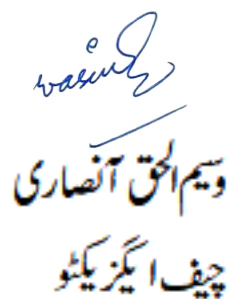 وسیم الحق آنصاری
چیف ایگزیکٹو